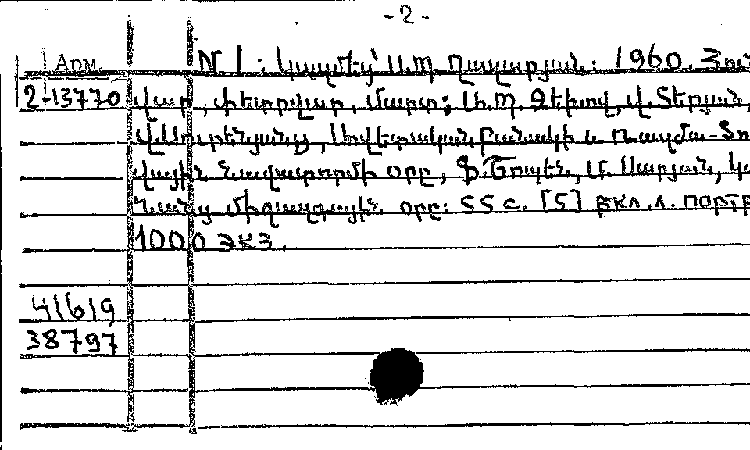 -2-
Арм. N 1: Կազմեց՝ Ս.Պ. Ղազարյան: 1960. Հուն
2-13770 վար, փետրվար, մարտ: Ա.Պ. Չեխով, Վ. Տերյան,
Վ. Սուրենյանց, Սովետական բանակի և Ռազմա-Ծո
վային Նավատորմի օրը, Ֆ. Շոպեն, Մ. Սարյան, Կա
նանց միջազգային օրը: 55 с. [5] вкл. л. портр
1000 экз.
41619
38797